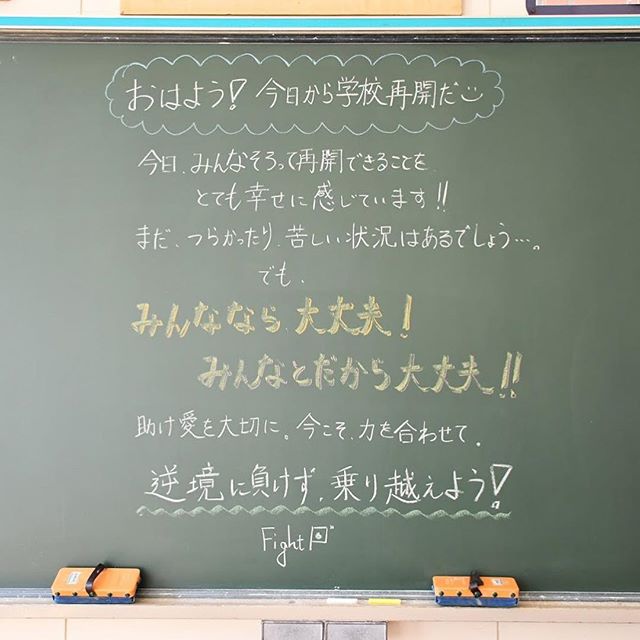 おはよう! 今日から学校再開だ
今日、みんなそろって再開できることを、
とても幸せに感じています!!
まだ、つらかったり、苦しい状況はあるでしょう…。
でも、
みんななら、大丈夫!
みんなとだから大丈夫!!
助け愛を大切に。今こそ、力を合わせて。
逆境に負けず、乗り越えよう!
Fight